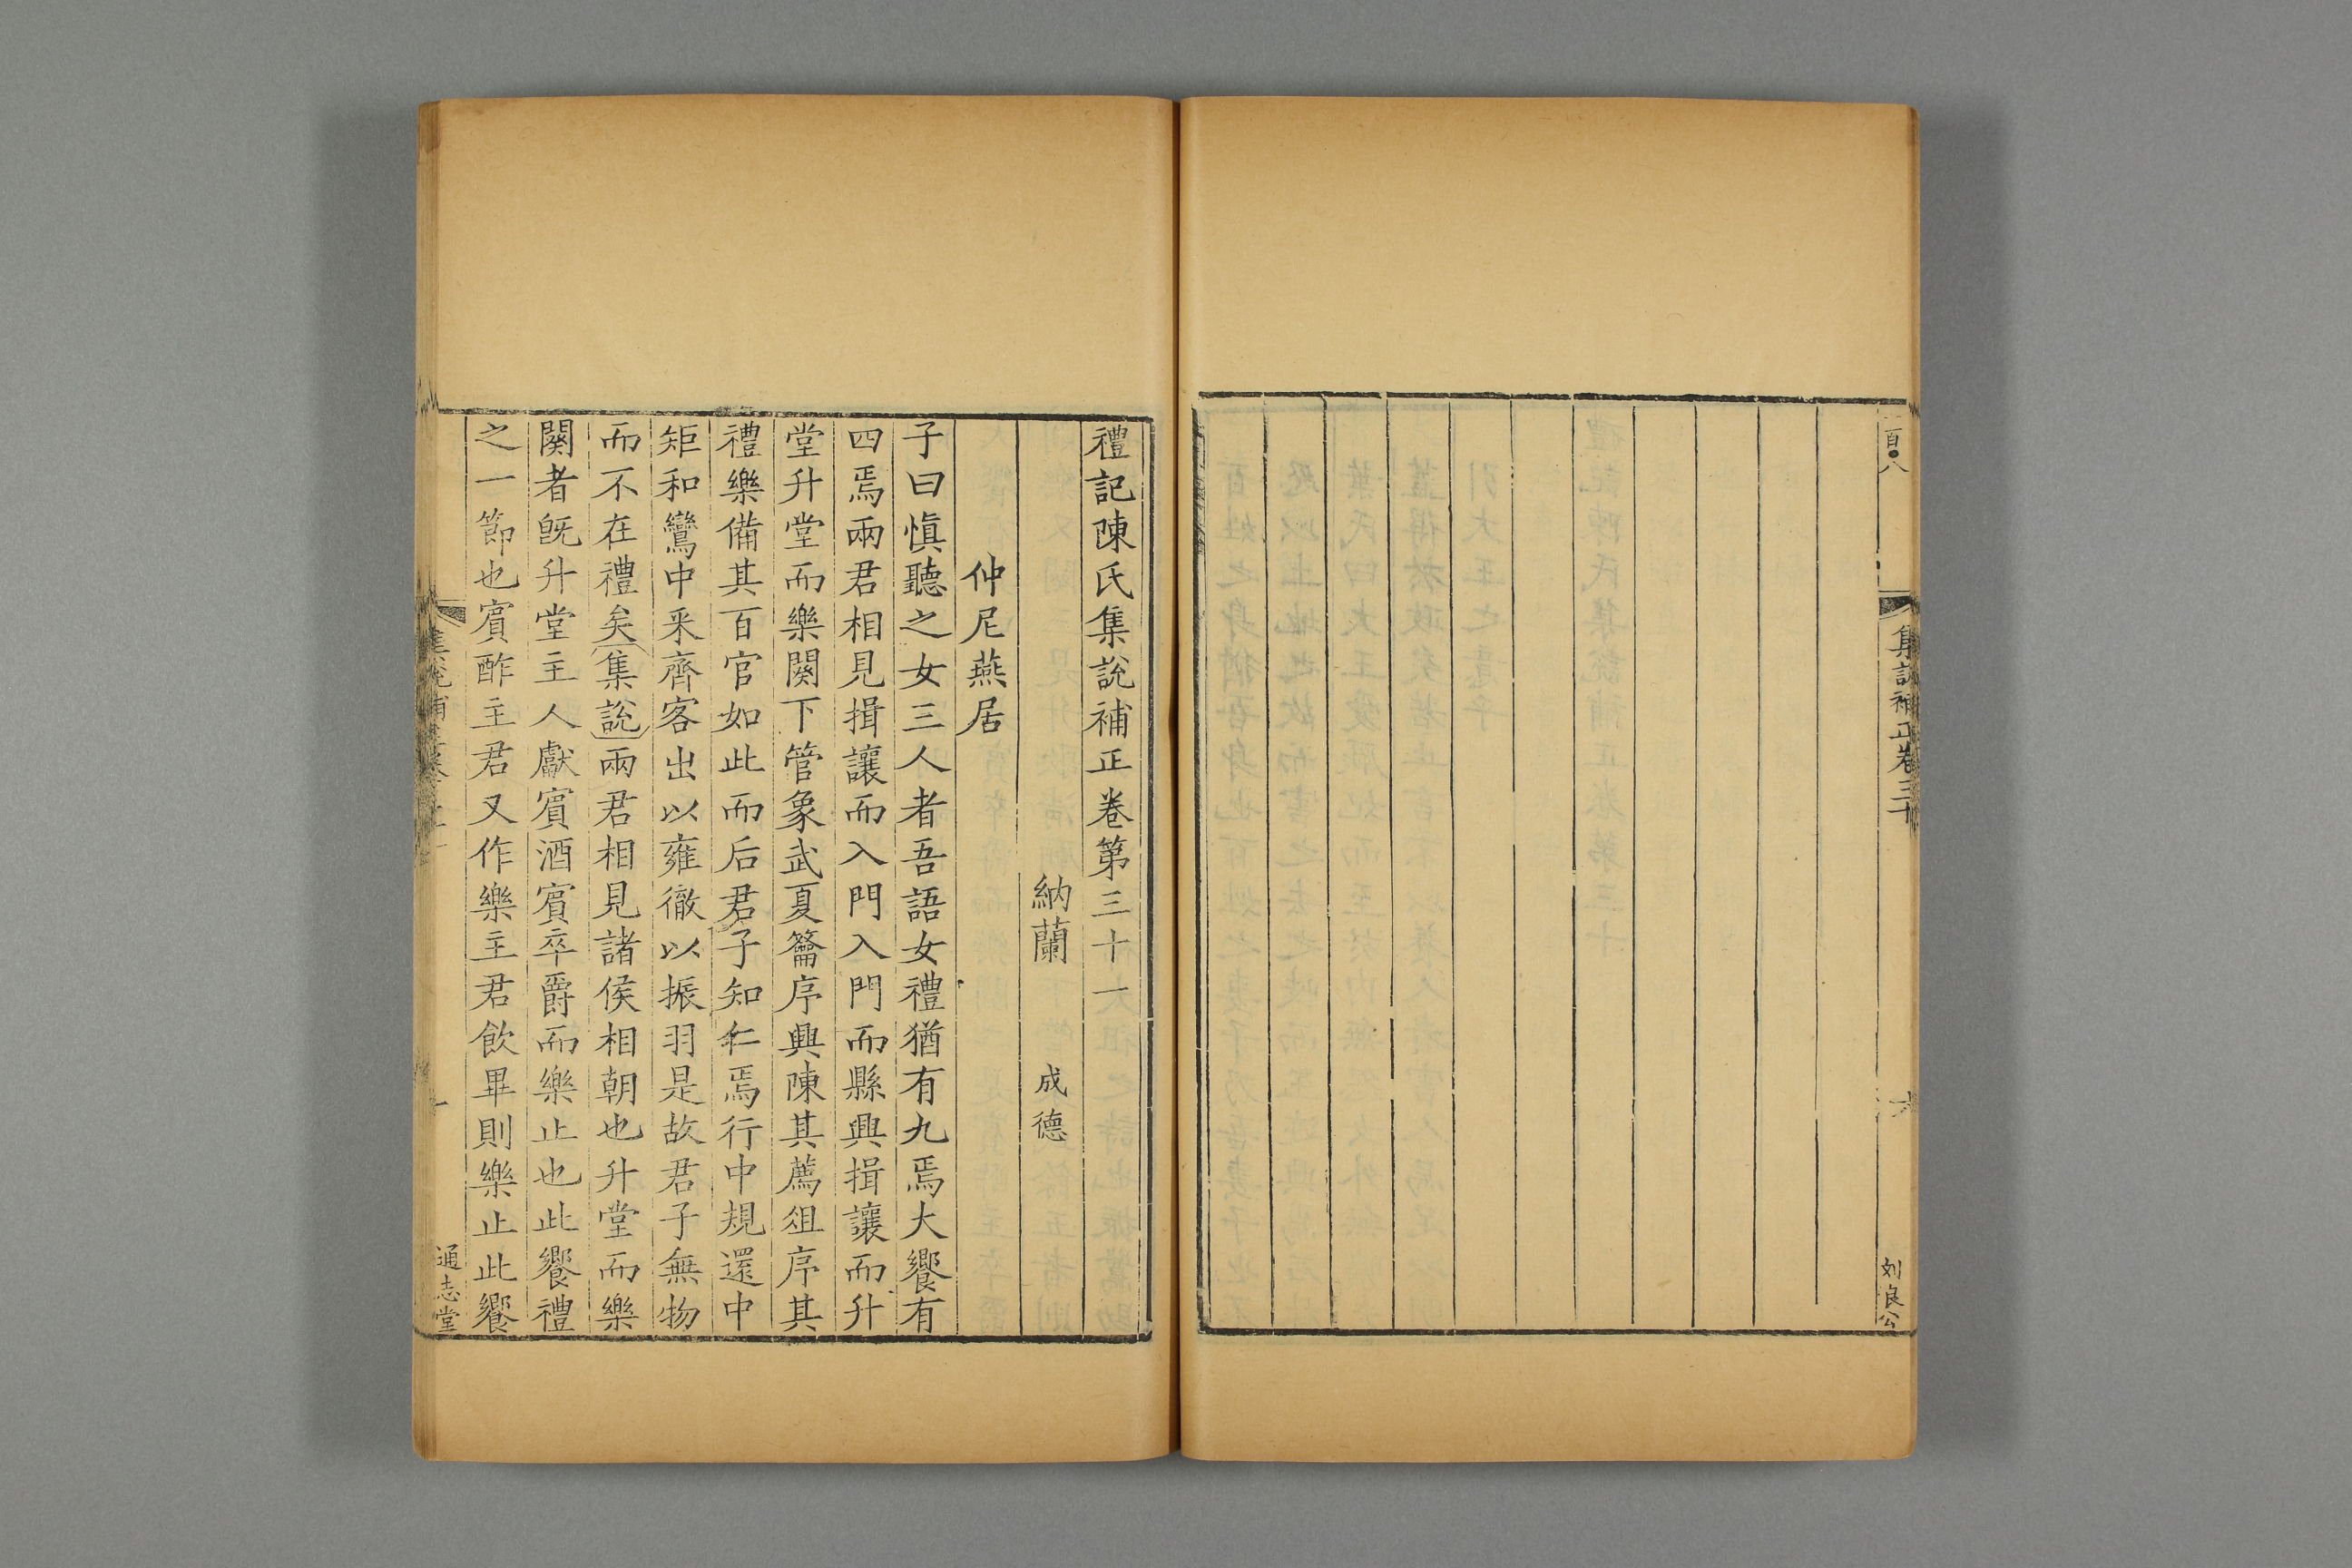 百八
集說補正卷三十
六
刘良公
禮記陳氏集說補正卷第三十一
納蘭 成德
仲尼燕居
子曰慎聽之女三人者吾語女禮猶有九焉大饗有
四焉兩君相見揖讓而入門入門而縣興揖讓而升
堂升堂而樂闋下管象武夏籥序興陳其薦俎序其
禮樂備其百官如此而后君子知仁焉行中規還中
矩和鸞中采齊客出以雍徹以振羽是故君子無物
而不在禮矣集說兩君相見諸侯相朝也升堂而樂
闋者旣升堂主人獻賓酒賓卒爵而樂止也此饗禮
之一節也賓酢主君又作樂主君飲畢則樂止此饗
一
通志堂